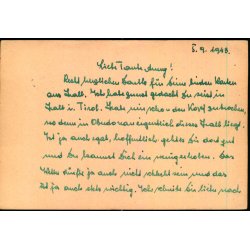 5. 9. 1943.
Liebe Tante Jung!
Recht herzlichen Dank für Deine beiden Karten
aus Hall. Ich habe zuerst gedacht Du seist in
Hall i. Tirol. Habe mir schon den Kopf zerbrochen,
wo denn in Oberdonau eigentlich dieses Hall liegt.
Ist ja auch egal, hoffentlich geht es Dir dort gut
und Du kannst Dich ein wenig erholen. Das
dürfte ja auch nicht schlecht sein und das
ist ja auch sehr wichtig. Ich schreibe Dir lieber nach